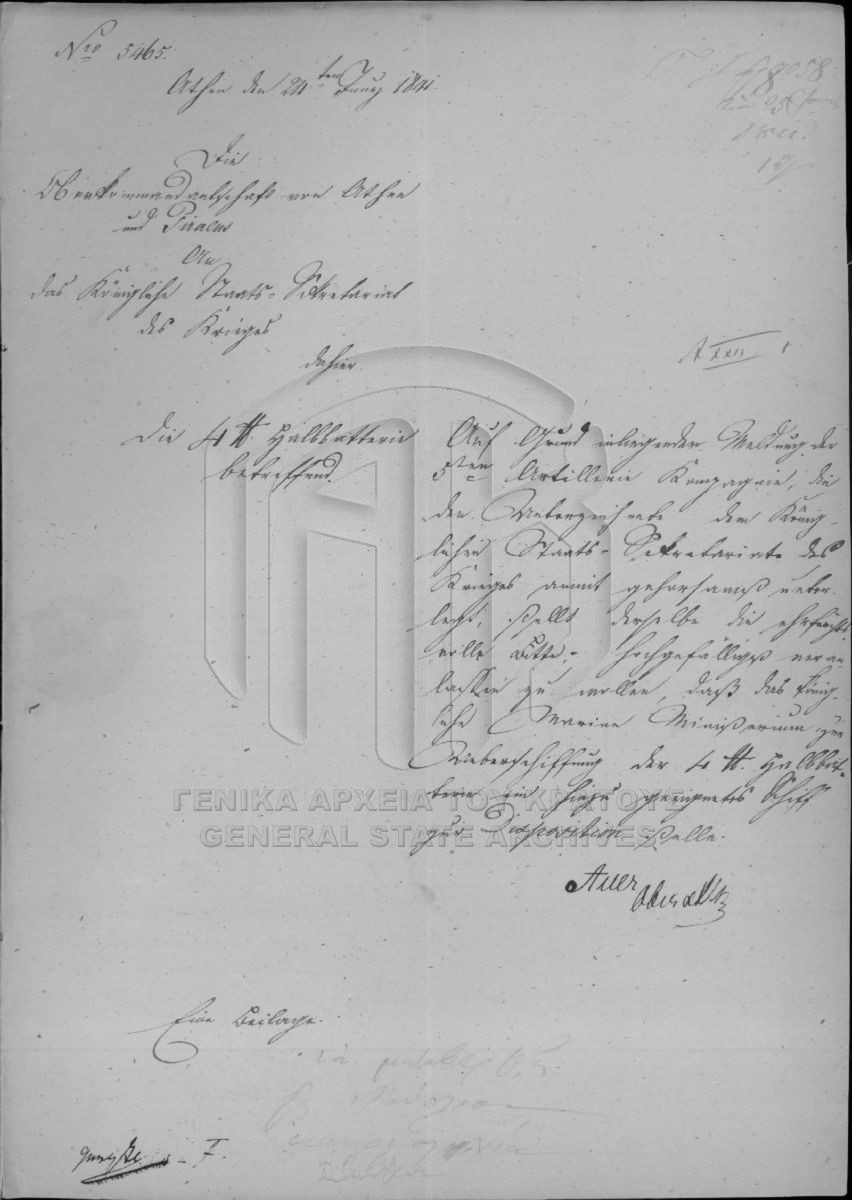 Nro 5465.
Athen den 24ten Juny 1841.
8258
Die
Oberkommandantschaft von Athen
und Piraeus
An
das Königliche Staats-Sekretariat
des Krieges
dahier.
A XXII
Die 4 ℔. Halbbatterie
betreffend.
Auf Grund inliegender Meldung der
5ten Artillerie Kompagnie, die
der Unterzeichnete dem König-
lichen Staats-Sekretariate des
Krieges anmit gehorsamst unter-
legt, stellt derselbe die ehrfurchts-
volle Bitte, hochgefälligst veran-
lassen zu wollen, daß das König-
liche Marine Ministerium zur
Ueberschiffung der 4 ℔. Halbbat-
terie ein hiezu geeignetes Schiff
zur Disposition stelle.
Auer
Eine Beilage.
ΓΕΝΙΚΑ ΑΡΧΕΙΑ ΤΟΥ ΚΡΑΤΟΥΣ
GENERAL STATE ARCHIVES